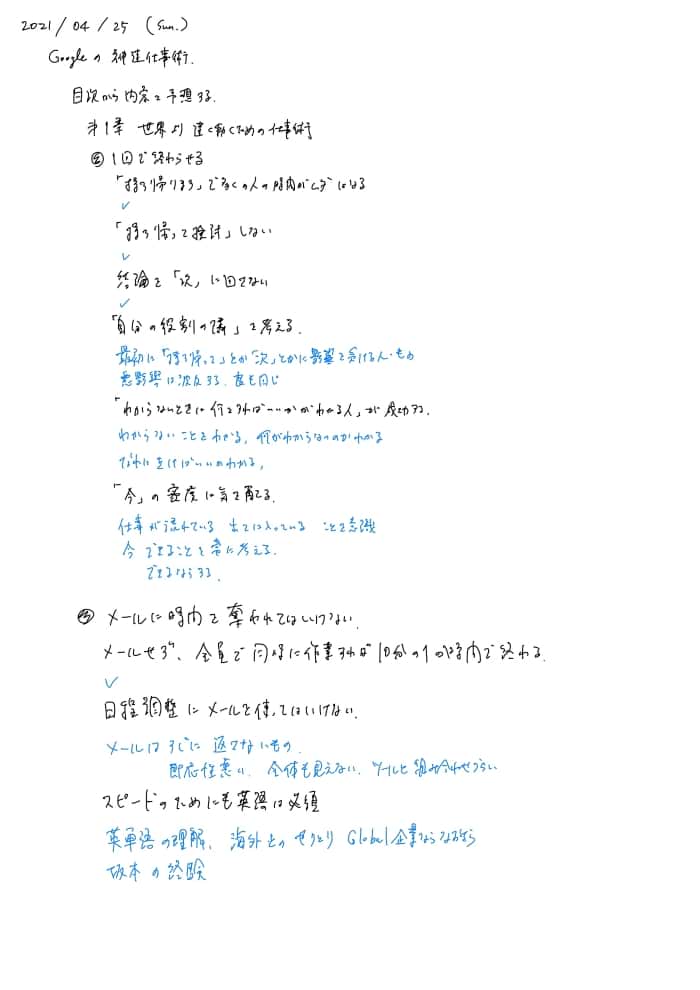 2021/04/25 (Sun.)
Googleの神速仕事術.
目次から内容を予想する.
第1章 世界より速く動くための仕事術
② 1回で終わらせる
「持ち帰ります」で多くの人の時間がムダになる
✓
「持ち帰って検討」しない
✓
結論を「次」に回さない
✓
「自分の役割の隣」を考える.
最初に「持ち帰って」とか「次」とかに影響を受ける人・もの
悪影響は波及する.
「わからないときに何をすればいいかがわかる人」が成功する.
わからないことをわかる, 何がわからないのかわかる
だれにきけばいいのかわかる,
「今」の密度に気を配る.
仕事が流れている 手に入っている ことを意識
今 できることを常に考える.
できるならする.
③ メールに時間を奪われてはいけない.
メールせず、全員で同時に作業すれば10分の1の時間で終わる.
✓
日程調整にメールを使ってはいけない.
メールはすぐに 返さないもの.
即応性悪い. 全体も見えない. ツールと組み合わせづらい
スピードのためにも英語は必須
英単語の理解、海外とのやりとり Global企業ならなおさら
坂本の経験